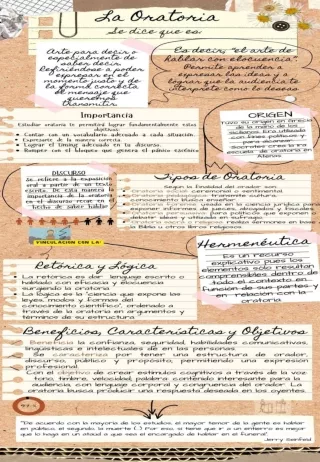 La Oratoria
Se dice que es:
Arte para decir o
especialmente de
saber decir.
Refiriéndose a poder
expresar en el
momento justo y de
la forma correcta
el mensaje que
queremos
transmitir.
Es decir, "el arte de
hablar con elocuencia".
Permite aprender a
expresar las ideas y a
lograr que la audiencia te
interprete como lo deseas
Importancia
Estudiar oratoria te permitirá lograr fundamentalmente estos
objetivos:
Contar con un vocabulario adecuado a cada situación.
Expresarte de la manera correcta
Lograr el timing adecuado en tu discurso.
Romper con el bloqueo que genera el pánico escénico
ORIGEN
Tuvo su origen en Grecia
de la mano de los
con fines políticos y
para alcanzar
escuela de oratoria en
Atenas
DISCURSO
Se refiere a la exposición
oral a partir de un texto
escrito. De esta manera la
importancia de la oratoria
en el discurso recae en el
hecho de saber hablar
Tipos de Oratoria
Según la finalidad del orador son:
Oratoria social: ceremonias o sentimental
conocimiento Busca enseñar
la Biblia u otros libros religiosos.
VINCULACIÓN CON LA:
Retórica y Lógica
La retórica es dar lenguaje escrito o
hablado con eficacia y elocuencia
surgiendo la oratoria
La lógica es la "ciencia que expone las
leyes, modos y formas del
conocimiento científico", ordenado a
través de la oratoria en argumentos y
términos de su estructura.
Hermenéutica
Es un recurso
explicativo pues los
elementos sólo resultan
comprensibles dentro de
todo el contexto en
función de sus partes y
en relación con la
oratoria
Beneficios, Características y Objetivos
Beneficia la confianza, seguridad, habilidades comunicativas,
lingüísticas e intelectuales de en las personas.
Se caracteriza por tener una estructura de orador,
discurso, público y propósito, permitiendo una expresión
profesional.
Con el objetivo de crear estímulos cognitivos a través de la voz:
tono, timbre, velocidad, palabra, contenido interesante para la
audiencia, con lenguaje corporal y congruencia del orador. La
oratoria busca producir una respuesta deseada en los oyentes.
"De acuerdo con la mayoría de los estudios, el mayor temor de la gente es hablar
en público, el segundo la muerte (...) Por eso, si tiene que ir a un entierro es mejor
que lo haga en un ataúd a que sea el encargado de hablar en el funeral".
Jerry Seinfeld